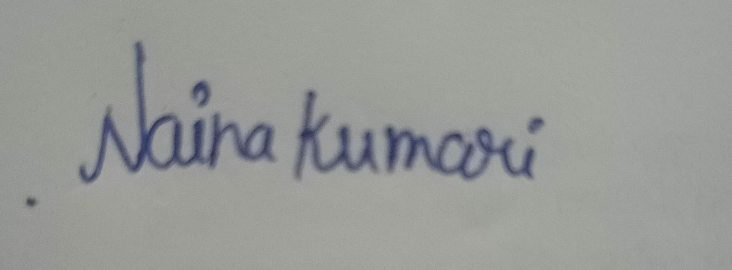 Naina Kumari